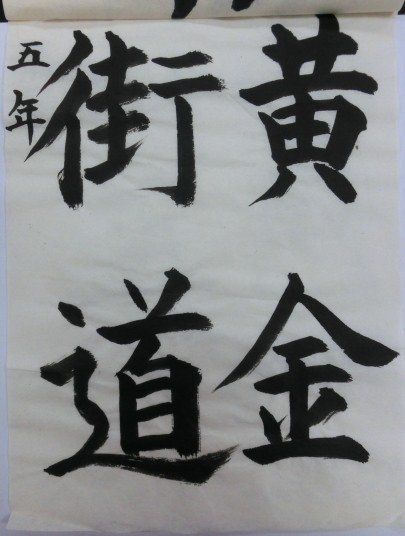 黄金
街道
五年